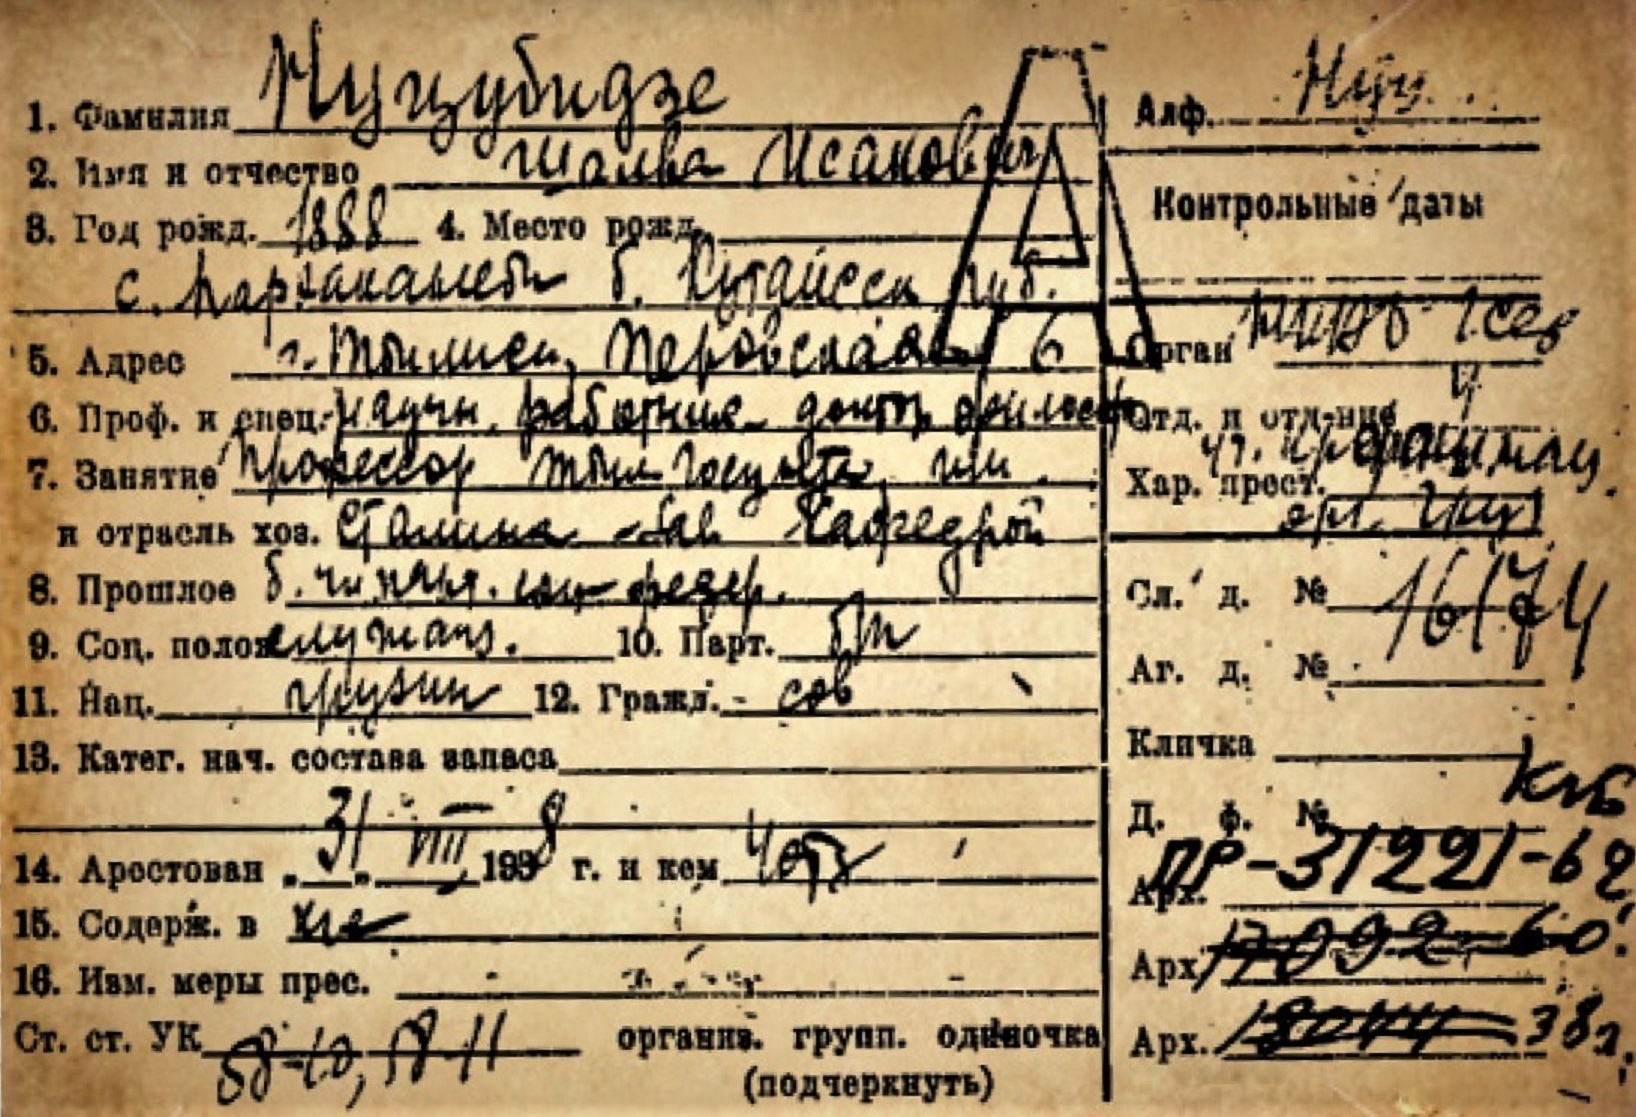 1. Фамилия Нуцубидзе
2. Имя и отчество Шалва Исакович
3. Год рожд. 1888 4. Место рожд.
с. б. Кутаисск. губ.
5. Адрес г. Тбилиси, Перовская 6
6. Проф. и спец. научн. работник доктор философ
7. Занятие Профессор Тбил Госун-та, им.
и отрасль хоз. Сталина зав Кафедрой
8. Прошлое б. чл. парт. соц-федер.
9. Соц. полож. служащ. 10. Парт. б/п
11. Нац. грузин 12. Гражд. сов
13. Катег. нач. состава запаса
14. Арестован 31 VIII 1938 г. и кем
15. Содерж. в
16. Изм. меры прес.
Ст. ст. УК 58-10, 58-11 организ. групп. одиночка
(подчеркнуть)
А
Алф. Нуц.
Контрольные даты
Орган
Отд. и отд-ние 4
Хар. прест.
Сл. д. № 16174
Аг. д. №
Кличка
Д. ф. № КГБ
Арх. ПР-31221-62
Арх. 17092-60
Арх. 18044 38г.